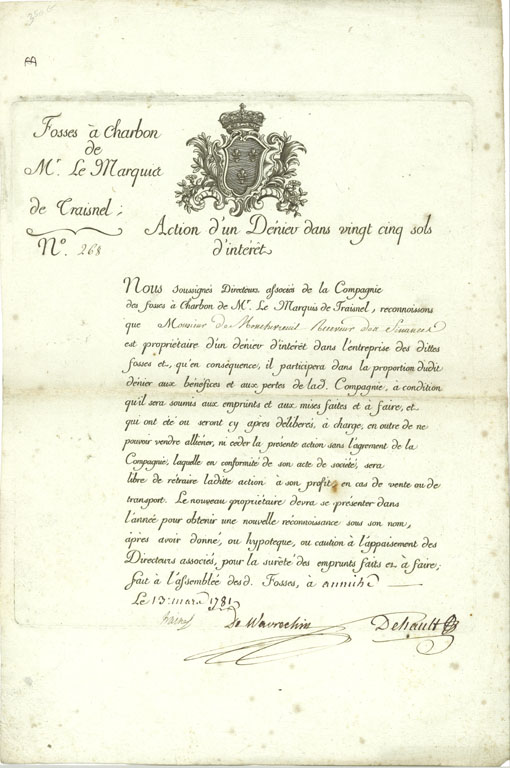 Fosses à Charbon
de
Mr. Le Marquis
de Traisnel;
No. 268
Action d'un Dénier dans vingt cinq sols
d'intérêt
Nous soussignés Directeurs associés de la Compagnie
des fosses à Charbon de Mr. Le Marquis de Traisnel, reconnoissons
que Monsieur de Receveur des finances
est propriétaire d'un dénier d'intérêt dans l'entreprise des dittes
fosses et, qu'en conséquence, il participera dans la proportion dudit
dénier aux bénéfices et aux pertes de lad. Compagnie, à condition
qu'il sera soumis aux emprunts et aux mises faites et à faire, et
qui ont été ou seront cy après délibérés, à charge, en outre de ne
pouvoir vendre alliéner, ni céder la présente action sans l'agrément de la
Compagnie, laquelle en conformité de son acte de société, sera
libre de rétraire laditte action à son profit, en cas de vente ou de
transport. Le nouveau propriétaire devra se présenter dans
l'année pour obtenir une nouvelle réconnoissance sous son nom,
après avoir donné, ou hypoteque, ou caution à l'appaisement des
Directeurs associés, pour la sureté des emprunts faits et à faire;
fait à l'assemblée desd. Fosses, à anniche
Le 13 mars 1781
De Wavrechin Dehault